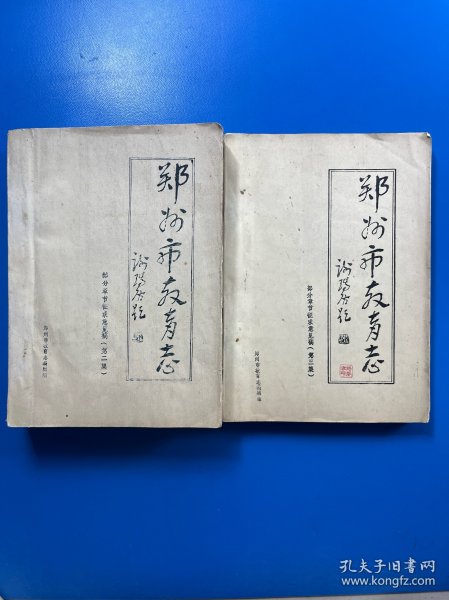 郑州市教育志
部分章节征求意见稿（第二集）
郑州市教育志编辑室编
郑州市教育志
部分章节征求意见稿（第三集）
郑州市教育志编辑室编
孔夫子旧书网
www.kongfz.com